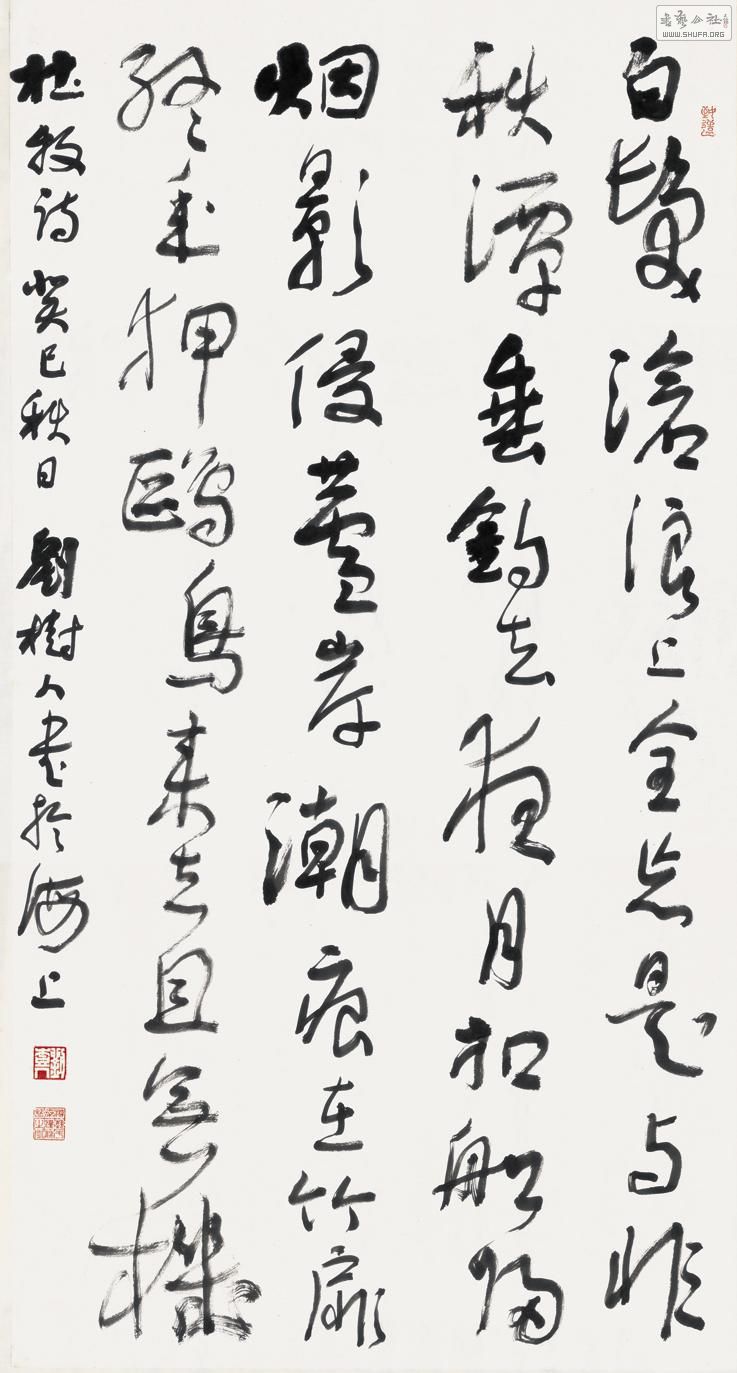 白髮滄浪上全忘是与非
秋潭垂釣去夜月扣船歸
烟影侵蘆岸潮痕在竹扉
終年狎鷗鳥来去且無機
杜牧诗 癸巳秋日 劉樹人書於海上
書藝公社
WWW.SHUFA.ORG